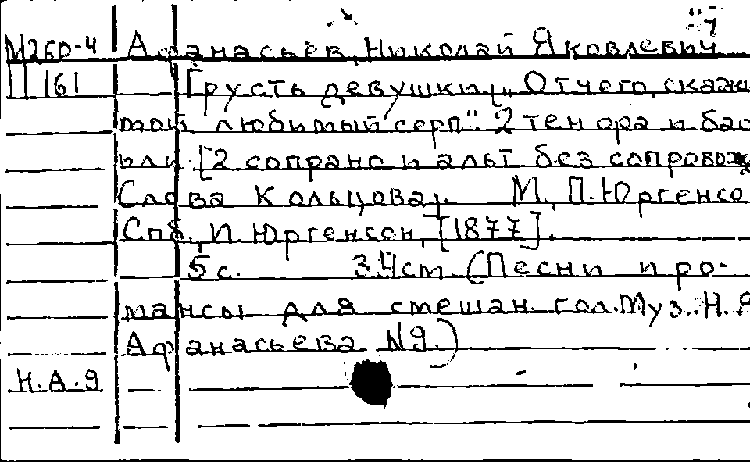 М260-4 Афанасьев, Николай Яковлевич
П 161 Грусть девушки. „Отчего, скажи
мой любимый серп". 2 тенора и бас
или [2 сопрано и альт без сопровож
Слова Кольцова. М., П. Юргенсо
Спб., И. Юргенсон, [1877].
5 с. 34 cm (Песни и ро-
мансы для смешан. гол. Муз. Н. Я
Афанасьева №9.)
Н.А.9